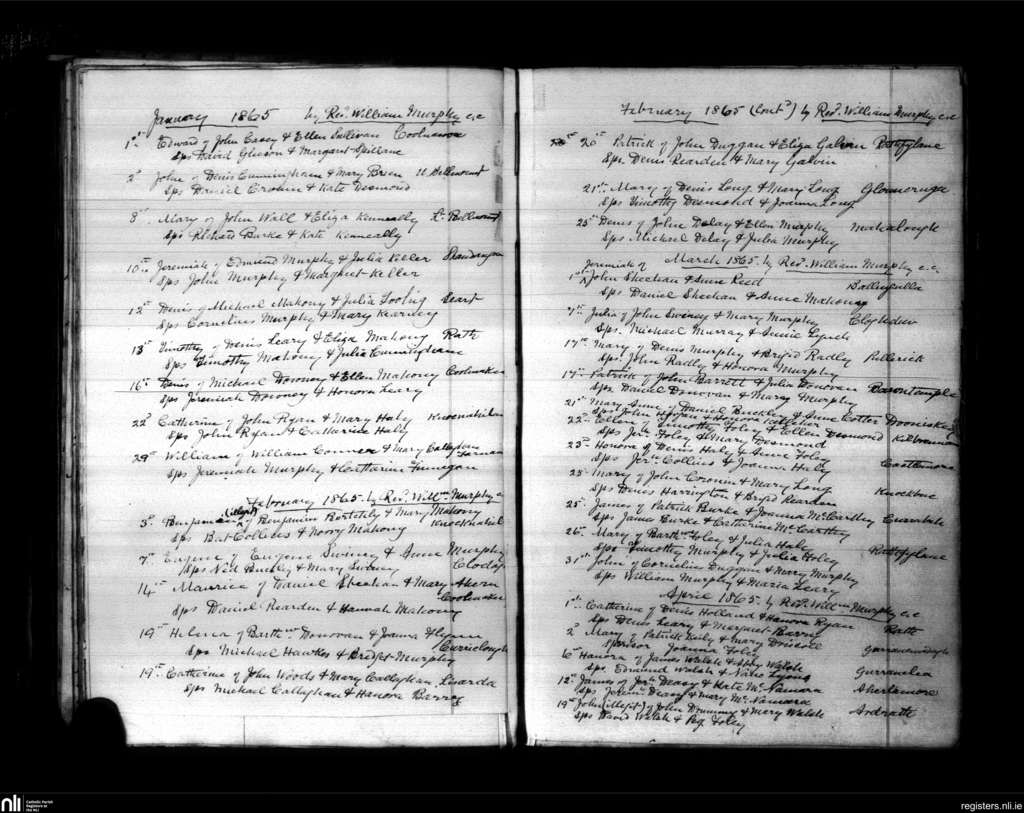 January 1865 by Revd. William Murphy c.c
1st Edward of John Casey & Ellen Sullivan
Sps David Gleeson & Margaret Spillane
2d John of Denis Cunningham & Mary Brien
Sps Daniel Cronin & Kate Desmond
8th Mary of John Wall & Eliza Kenneally
Sps Richard Burke & Kate Kenneally
10th Jeremiah of Edmund Murphy & Julia Keller
Sps John Murphy & Margaret Keller
12th Denis of Michael Mahony & Julia
Sps Cornelius Murphy & Mary Kearney
13th Timothy of Denis Leary & Eliza Mahony Rath
Sps Timothy Mahony & Julia Cunningham
16th Denis of Michael Downey & Ellen Mahony
Sps Jeremiah Downey & Honora Leary
22d Catherine of John Ryan & Mary Haly
Sps John Ryan & Catharine Haly
29th William of William Connor & Mary Callaghan
Sps Jeremiah Murphy & Catharine Finnegan
February 1865 by Revd. Willm. Murphy
(illegt)
5th Benjamin of Benjamin & Mary Mahony
Sps Bat Collins & Mahony
7th Eugene of Eugene Swiney & Anne Murphy
Sps Neil Buckley & Mary Swiney
14th Maurice of Daniel Sheehan & Mary Ahern
Sps Daniel Rearden & Hannah Mahony
19th of Barthw. Donovan & Joanna Flynn
Sps Michael Hawkes & Bridget Murphy
19th Catherine of John Woods & Mary Callaghan Lisarda
Sps Michael Callaghan & Hanora Barry
February 1865 (Contd) by Revd. William Murphy c.c
20th Patrick of John Duggan & Eliza Galvin
Sps Denis Rearden & Mary Galvin
21st Mary of Denis Long & Mary Long
Sps Timothy Desmond & Joanna Long
25th Denis of John Delay & Ellen Murphy
Sps Michael Delay & Julia Murphy
March 1865 by Revd. William Murphy c.c.
Jeremiah of
1st John Sheehan & Anne Reed
Sps Daniel Sheehan & Anne Mahony
7th Julia of John Swiney & Mary Murphy
Sps. Michael Murray & Annie Lynch
17th Mary of Denis Murphy & Brigid Radley
Sps. John Radly & Honora Murphy
17th Patrick of John Barrett & Julia Donovan
Sps Daniel Donovan & Mary Murphy
21st Mary Anne of Daniel Buckley & Anne Cotter
Sps John & Honora Kelleher
22d Ellen of Timothy Foley & Ellen Desmond
Sps Jerh. Foley & Mary Desmond
23d Honora of Denis Haly & Anne Foley
Sps Jerh. Collins & Joanna Haly
25th Mary of John Cronin & Mary Long
Sps Denis Harrington & Brigd Rearden
25th James of Patrick Burke & Joanna McCarthy
Sps James Burke & Catherine McCarthy
26th Mary of Barthw. Foley & Julia Haly
Sps Timothy Murphy & Julia Foley
31st John of Cornelius Duggan & Mary Murphy
Sps William Murphy & Maria Leary
April 1865 by Revd. Willm Murphy c.c
1st Catherine of Denis Holland & Hanora Ryan Rath
Sps Denis Leary & Margaret Barry
2d Mary of Patrick & Mary Driscoll
Sponsor Joanna Foley
6th Hanora of James Walsh & Abby Walsh
Sps. Edmund Walsh & Lyons
12th James of Jerh Deasy & Kate McNamara
Sps Jeremh. Deasy & Mary McNamara
19th John (illegt) of John & Mary Walsh
Sps David Walsh & Foley
nli
Catholic Parish
Registers at
the NLI
registers.nli.ie